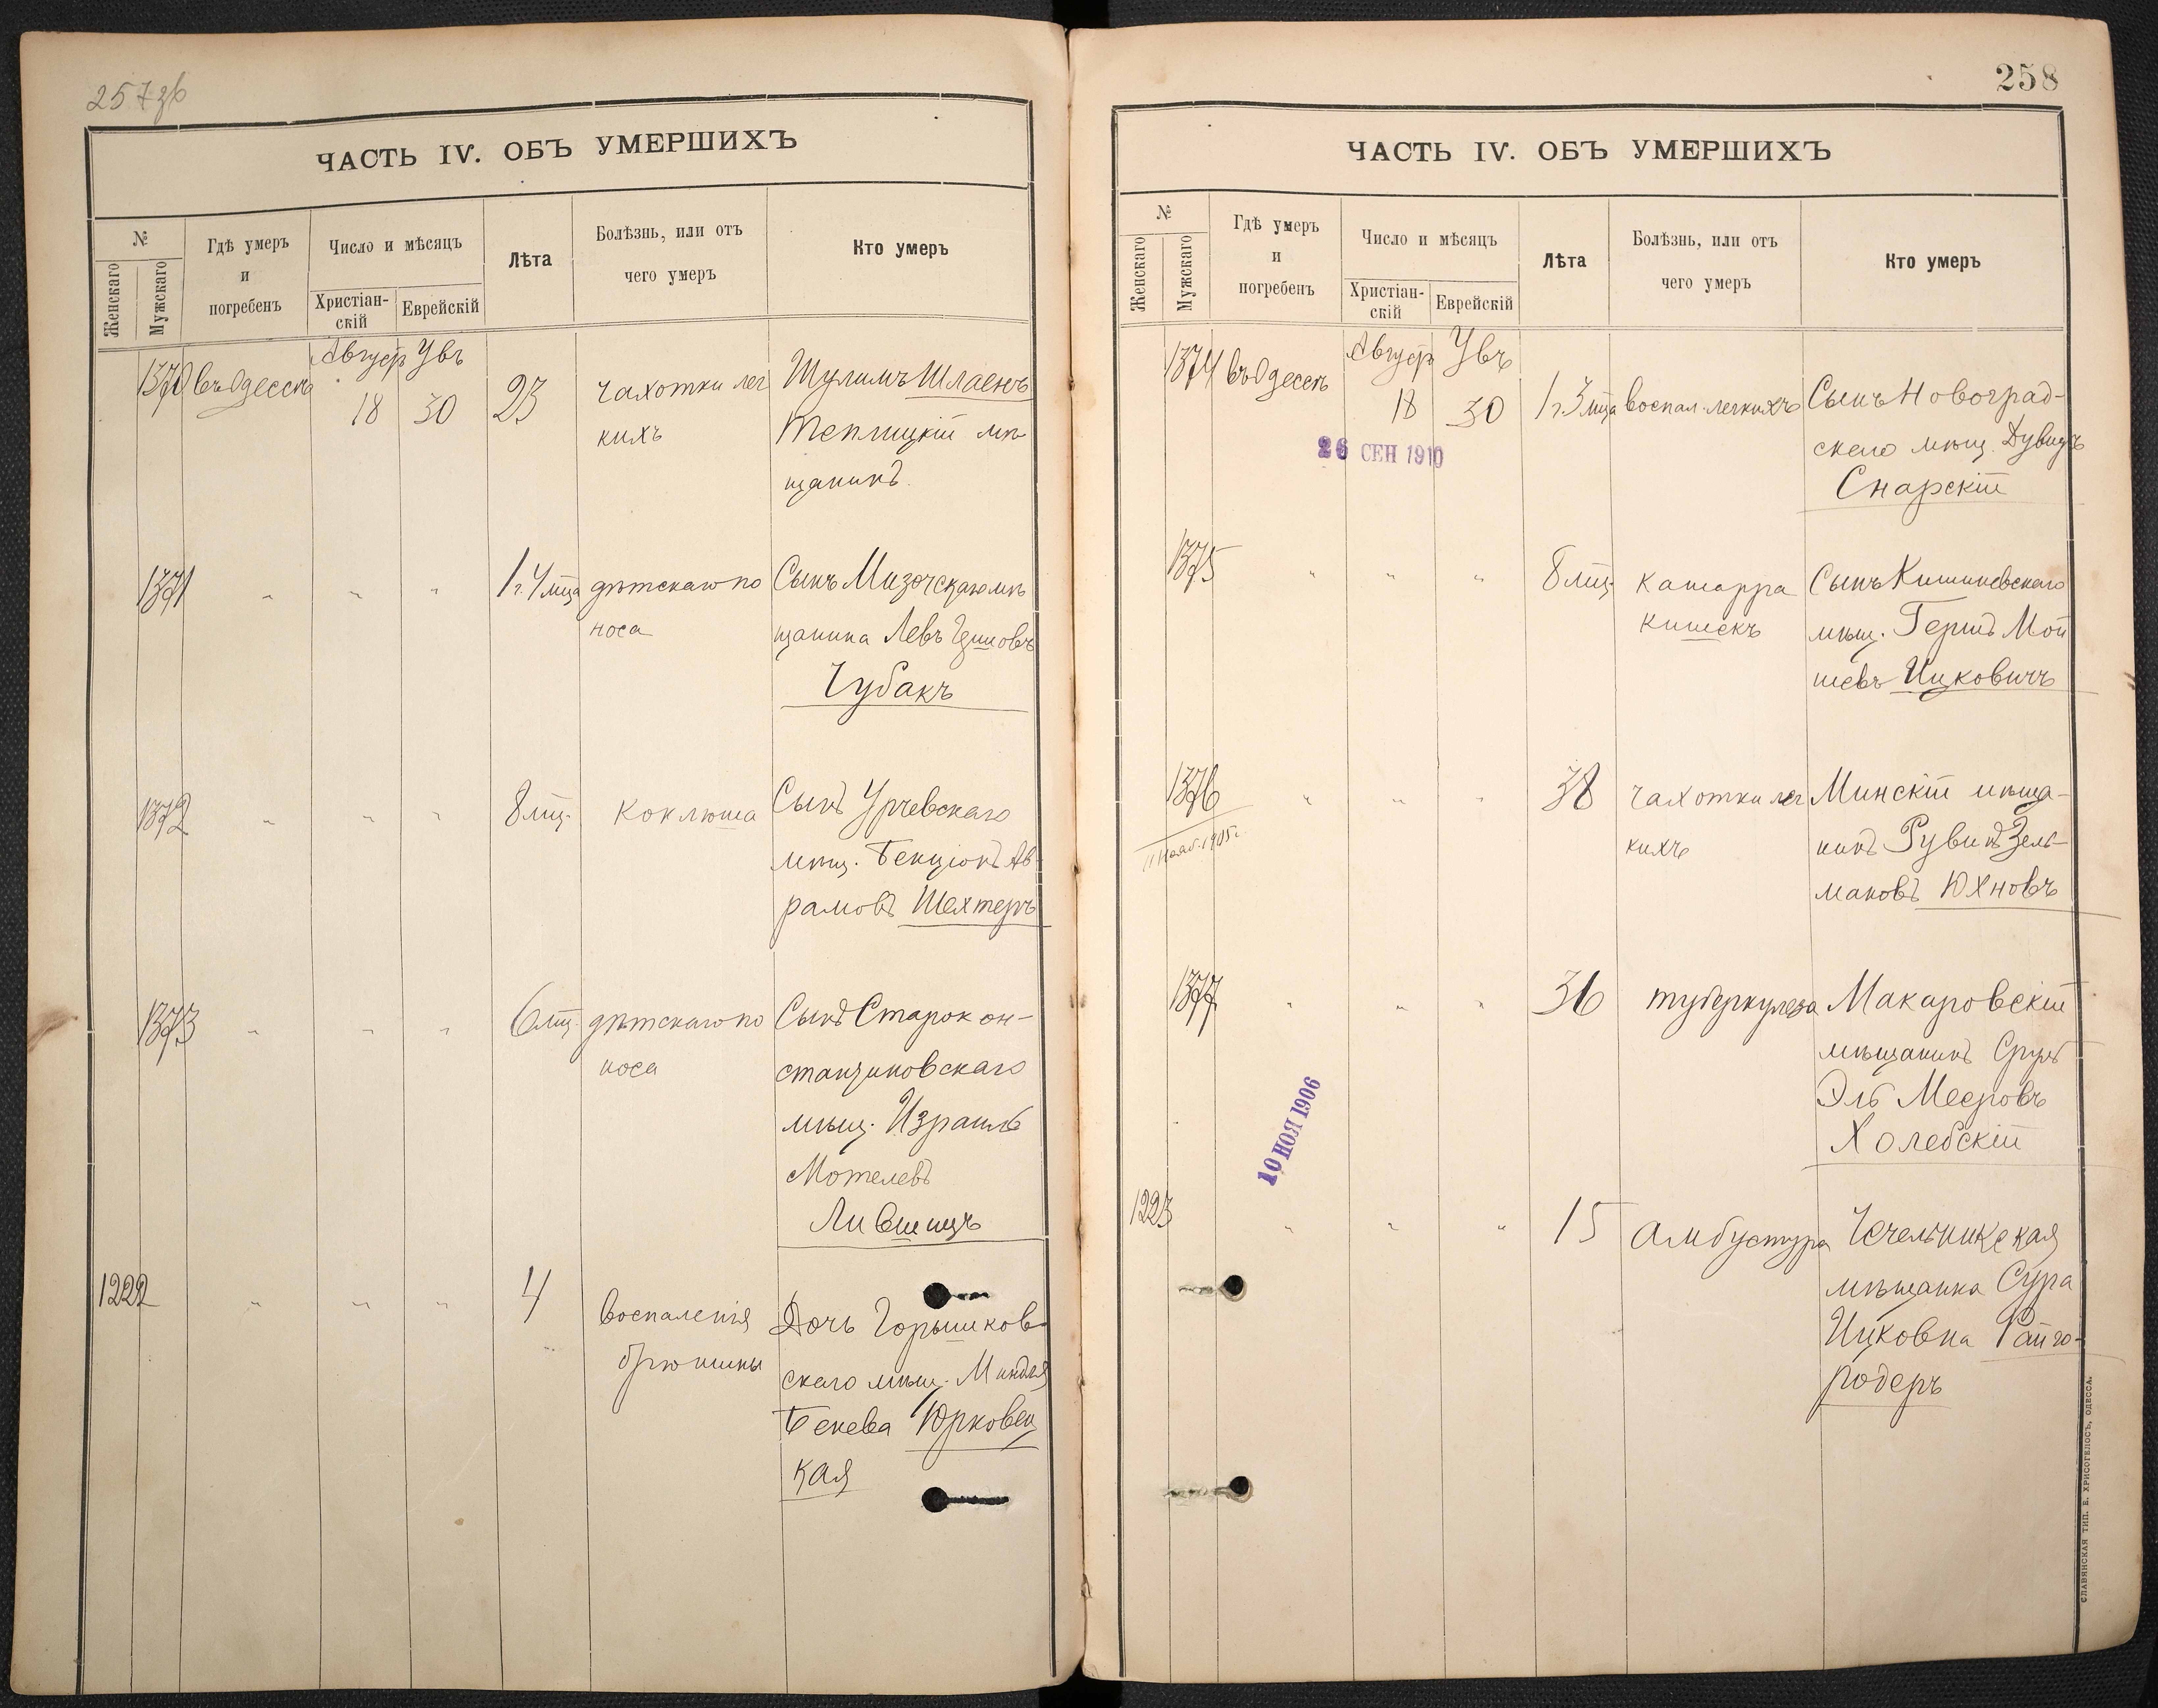 257 зв
ЧАСТЬ IV. ОБЪ УМЕРШИХЪ
№
Женскаго
Мужскаго
Гдѣ умеръ
и
погребенъ
Число и мѣсяцъ
Христіан-
скій
Еврейскій
Лѣта
Болѣзнь, или отъ
чего умеръ
Кто умеръ
Август Увъ
1370 въ Одессѣ 18 30 23 чахотки лег
кихъ
Шулимъ Шлаенъ
Теплицкій мѣ
щанинъ.
1371 " " " 1 г. 4 мца дѣтскаго по
носа
Сынъ Мизочскаго мѣ
щанина Левъ Ицшовъ
Чубакъ
1372 " " " 8 мц. Коклюша
Сынъ Уричевскаго
мѣщ. Бенціонъ Ав-
рамовъ Шехтеръ
1373 " " " 6 мц. дѣтскаго по
носа
Сынъ Старокон-
стантиновскаго
мѣщ. Израиль
Мотелевъ
Лившицъ
1222 " " " 4 воспаленія
брюшины
Дочь Горышков-
скаго мѣщ. Миндля
Бенева Юрковец
кая
258
ЧАСТЬ IV. ОБЪ УМЕРШИХЪ
№
Женскаго
Мужскаго
Гдѣ умеръ
и
погребенъ
Число и мѣсяцъ
Христіан-
скій
Еврейскій
Лѣта
Болѣзнь, или отъ
чего умеръ
Кто умеръ
Август Увъ
1374 въ Одессѣ 18 30 1 г. 3 мца воспал. легкихъ
26 СЕН 1910
Сынъ Новоград-
скаго мѣщ. Дувидъ
Снарскій
1375 " " " 8 мц. Катарра
кишекъ
Сынъ Кишиневскаго
мѣщ. Гершъ Мой
шевъ Ицковичъ
1376 " " " 38 чахотки лег
кихъ
11 Нояб. 1905 г.
Минскій мѣща-
нинъ Рувинъ Зель-
мановъ Юхновъ
1377 " " " 36 туберкулеза
Макаровскій
мѣщанинъ Сруль
Эль Мееровъ
Холебскій
10 НОЯ 1906
1223 " " " 15 Амбустура
Чечельникская
мѣщанка Сура
Ицковна Райго-
родеръ
СЛАВЯНСКАЯ ТИП. Е. ХРИСОГЕЛОСЪ, ОДЕССА.